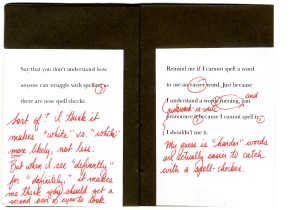 Say that you don't understand how
anyone can struggle with spelling as
there are now spell checks.
Sort of? I think it
makes "white" vs. "which"
more likely, not less.
But when I see "defiantly"
for "definitely," it makes
me think you should get a
second pair of eyes to look.
Remind me if I cannot spell a word
to use an easier word. Just because
I understand a words meaning, can
and
pronounce it because I cannot spell it
I shouldn't use it.
My guess is "harder" words
are actually easier to catch
with a spell-checker.